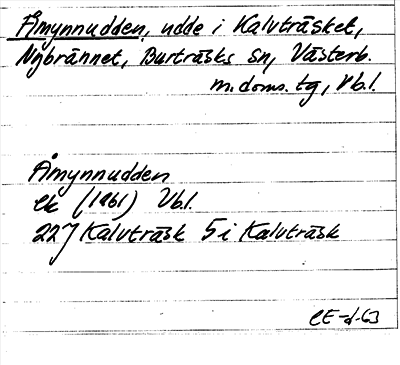 Åmynnudden, udde i Kalvträsket,
Nybrännet, Burträsks sn, Västerb.
m. doms. tg, Vb.l.
Åmynnudden
ek (1961) Vb.l.
22J Kalvträsk 5i Kalvträsk
CE-d-63